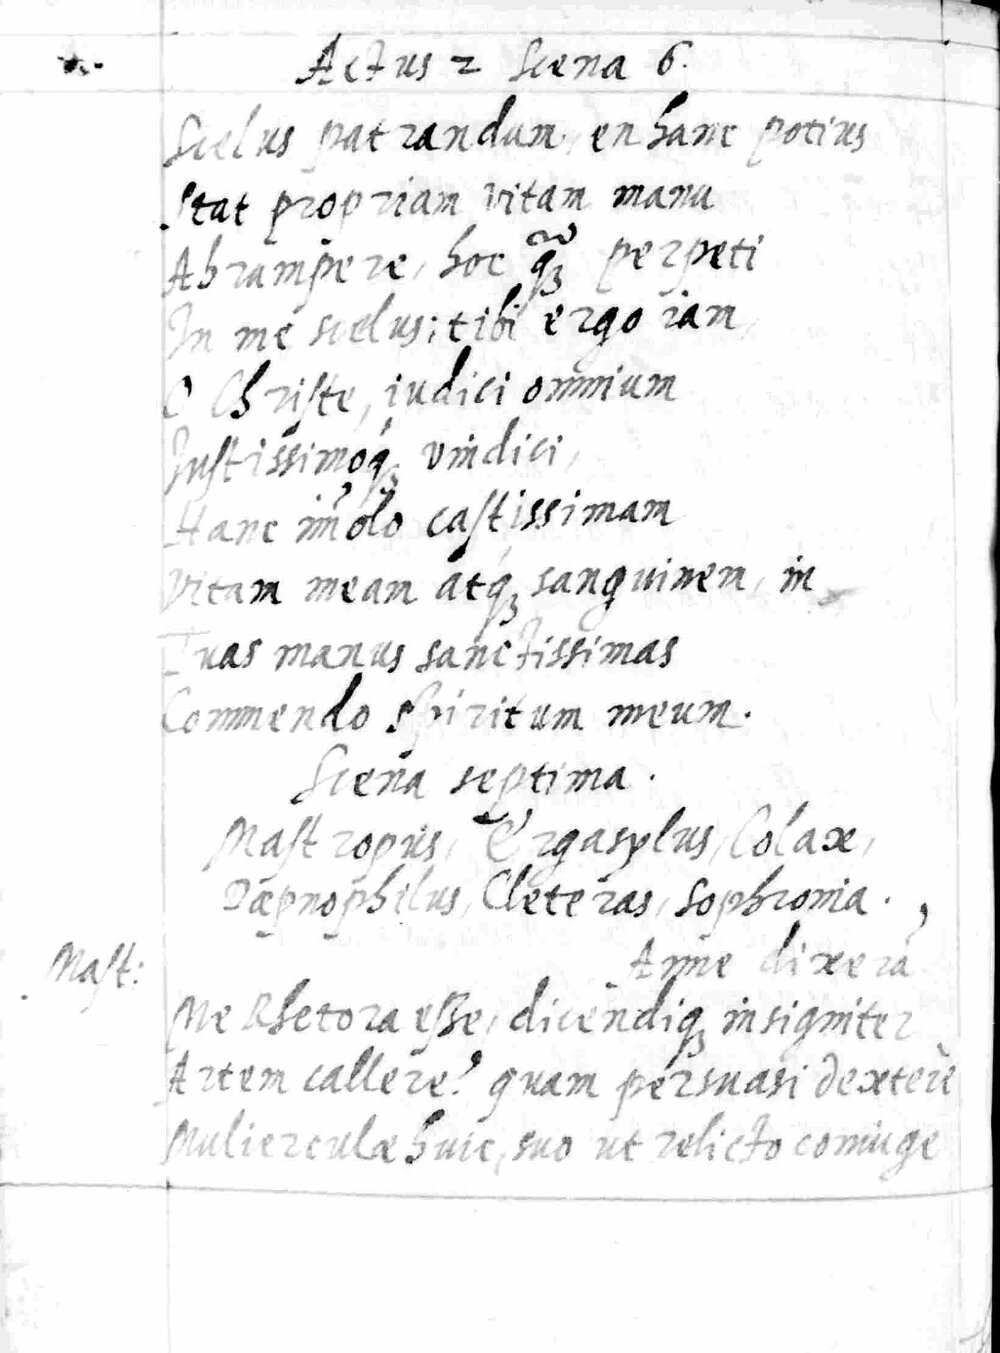 Actus 2 Scena 6.
Scelus patrandum, en hanc potius
Stat propriam vitam manu
Abrumpere, hoc q̃ꝫ perpeti
In me scelus; tibi ergo iam,
O Christe, iudici omnium
Justissimoqꝫ vindici,
Hanc im̃olo castissimam
Vitam meam atqꝫ sanguinem, in
Tuas manus sanctissimas
Commendo spiritum meum.
Scena septima.
Mastropus, Ergasylus, Colax,
Dæpnophilus, Cleteras, Sophronia.
Mast: Anne dixerā
Me Rhetora esse, dicendiqꝫ insigniter
Artem callere? quam persuasi dexterè
Mulierculæ huic, suo ut relicto coniuge